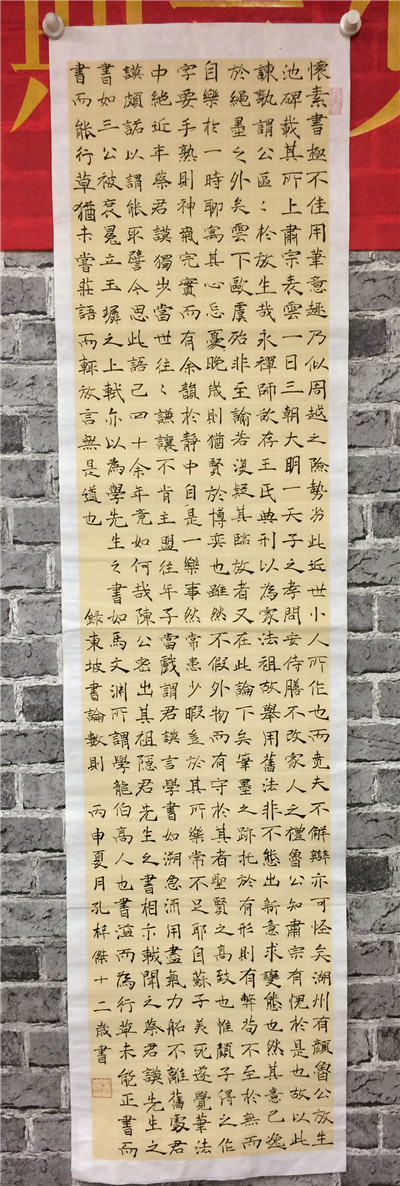 懷素書極不佳用筆意趣乃似周越之險勢劣此近世小人所作也而堯夫不解辯亦可怪矣湖州有顏魯公放生
池碑載其所上肅宗表雲一日三朝大明一天子之孝問安侍膳不改家人之禮魯公知肅宗有愧於是也故以此
諫孰謂公區〻於放生哉永禪師欲存王氏典刑以為家法祖故舉用舊法非不能出新意求變態也然其意已逸
於繩墨之外矣雲下歐虞殆非至論若復疑其臨放者又在此論下矣筆墨之跡托於有形則有弊苟不至於無而
自樂於一時聊寓其心忘憂晚歲則猶賢於博奕也雖然不假外物而有守於其者聖賢之高致也惟顏子得之作
字要手熟則神氣完實而有余韻於靜中自是一樂事然常患少暇豈於其所樂常不足耶自蘇子美死遂覺筆法
中絕近年蔡君謨獨步當世往〻謙讓不肯主盟往年子當戲謂君謨言學書如溯急流用盡氣力船不離舊處君
謨頗諾以謂能取譬今思此語已四十余年竟如何哉陳公密出其祖隱君先生之書相示載聞之蔡君謨先生之
書如三公被袞冕立玉墀之上軾亦以為學先生之書如馬文淵所謂學龍伯高人也書法而為行草未能正書而
書而能行草猶未嘗莊語而輒放言無是道也 錄東坡書論數則 丙申夏月孔梓傑十二歲書